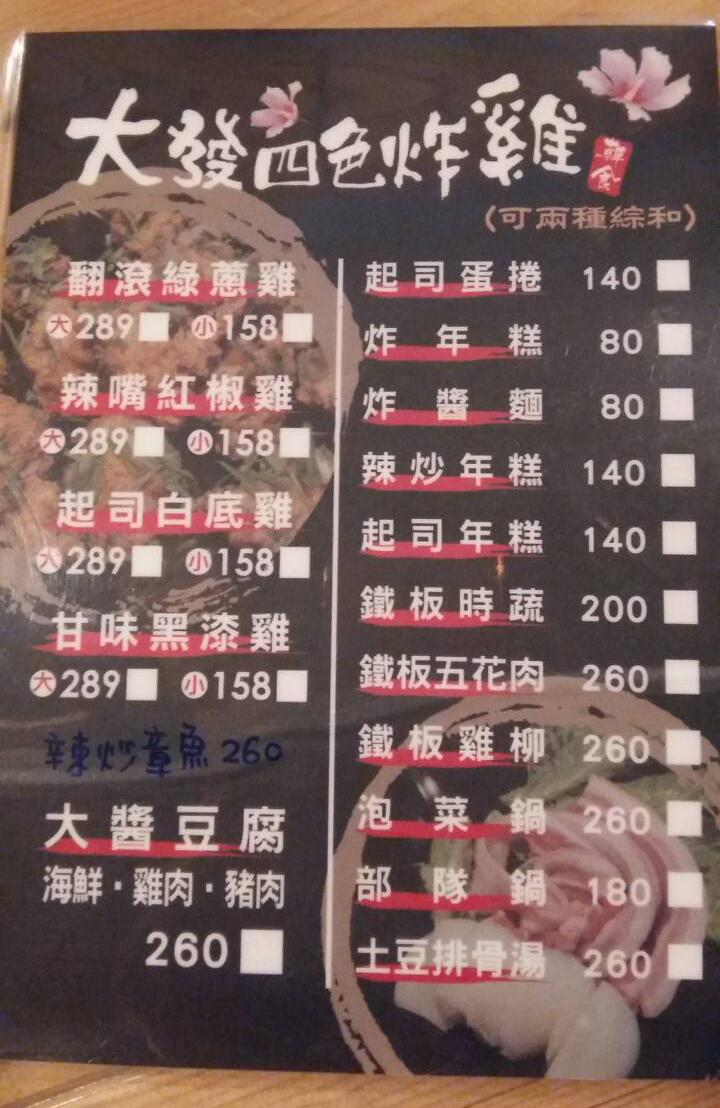 大發四色炸雞
韓食
(可兩種綜和)
翻滾綠蔥雞
大289 小158
辣嘴紅椒雞
大289 小158
起司白底雞
大289 小158
甘味黑漆雞
大289 小158
辣炒章魚 260
大醬豆腐
海鮮·雞肉·豬肉
260
起司蛋捲 140
炸年糕 80
炸醬麵 80
辣炒年糕 140
起司年糕 140
鐵板時蔬 200
鐵板五花肉 260
鐵板雞柳 260
泡菜鍋 260
部隊鍋 180
土豆排骨湯 260